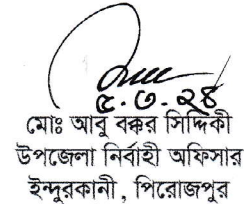 ৫.৩.২৪
মোঃ আবু বক্কর সিদ্দিকী
উপজেলা নির্বাহী অফিসার
ইন্দুরকানী, পিরোজপুর